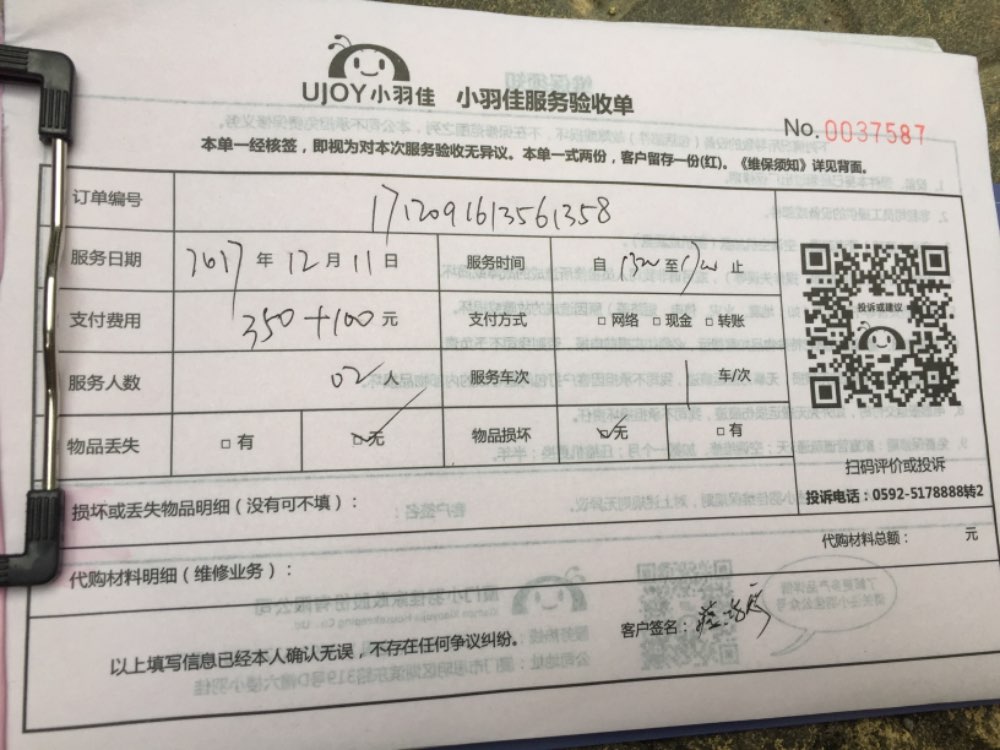 UJOY小羽佳 小羽佳服务验收单
No. 0037587
本单一经核签，即视为对本次服务验收无异议。本单一式两份，客户留存一份(红)。《维保须知》详见背面。
订单编号 1712091613561358
服务日期 2017年12月11日 服务时间 自 至 止
支付费用 350+100元 支付方式 □网络 □现金 □转账
服务人数 02人 服务车次 1 车/次
物品丢失 □有 ☑无 物品损坏 ☑无 □有
投诉或建议
扫码评价或投诉
投诉电话：0592-5178888转2
损坏或丢失物品明细（没有可不填）：
代购材料总额： 元
代购材料明细（维修业务）：
客户签名：
以上填写信息已经本人确认无误，不存在任何争议纠纷。